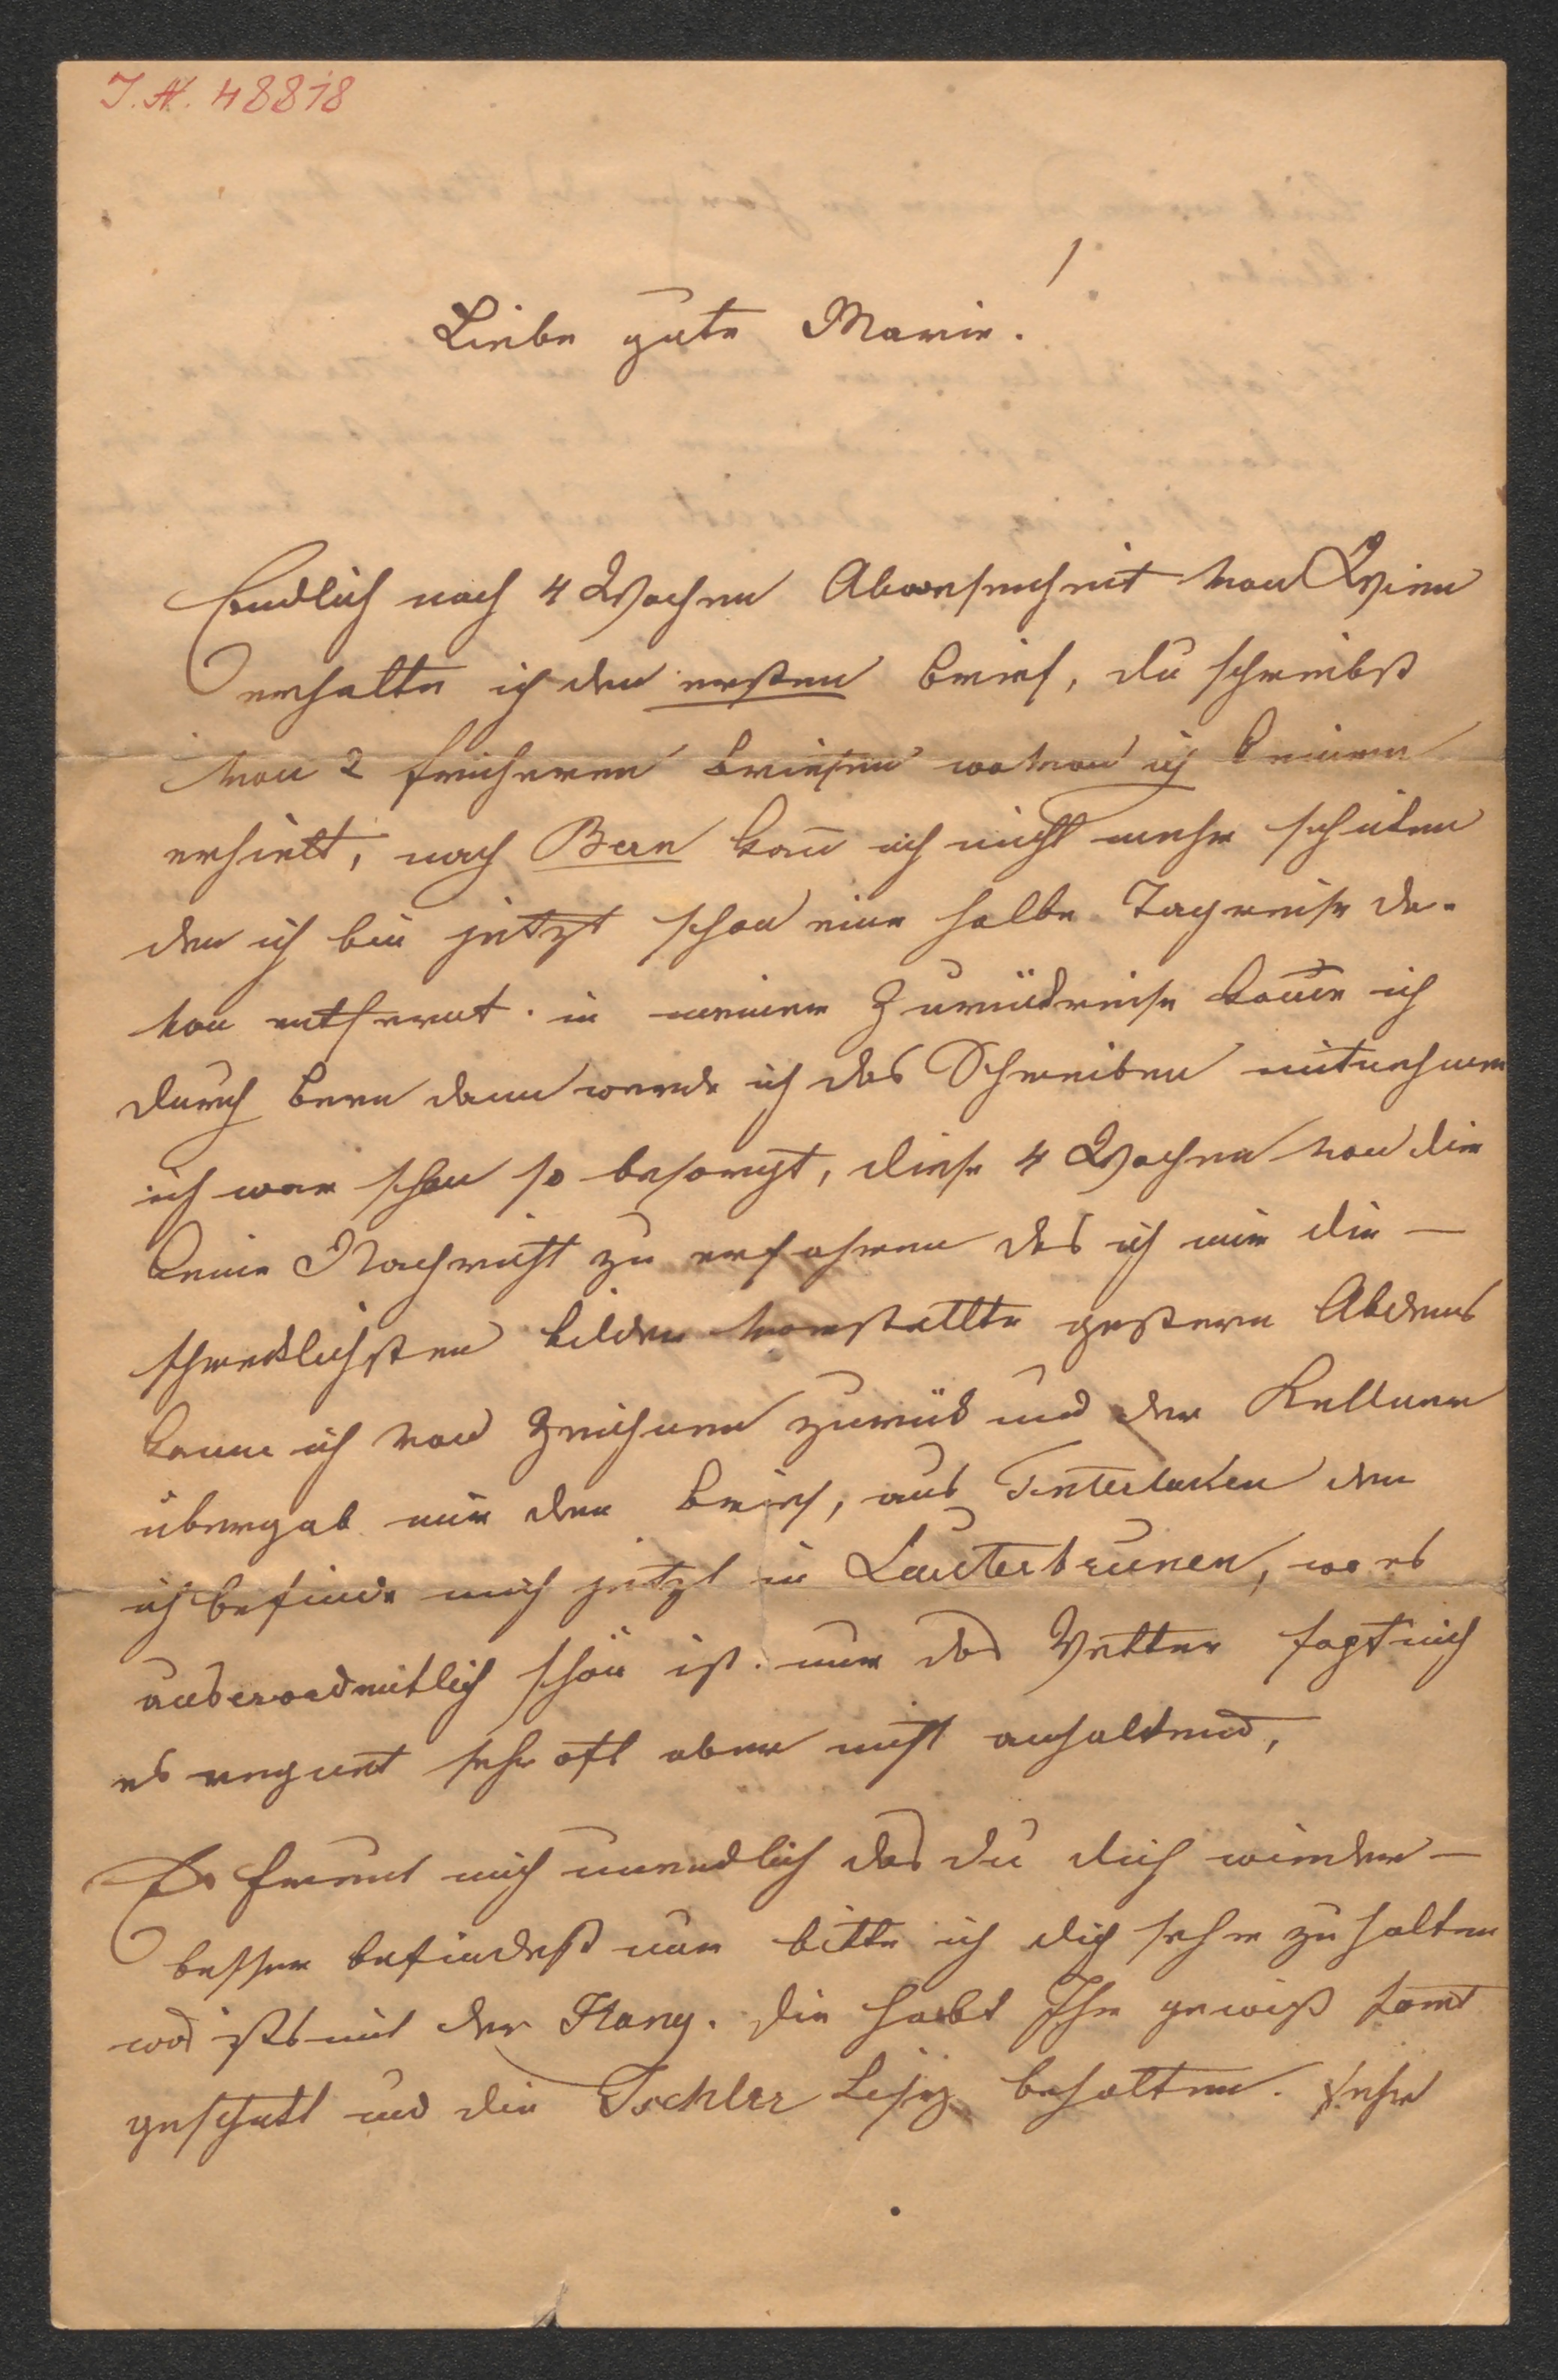 J.N. 48818
1
Liebe gute Marie.
Endlich nach 4 Wochen Abwesenheit von Wien
erhalte ich den ersten Brief, du schreibst
von 2 früheren Briefen wovon ich keinen
erhielt, nach Bern kan̄ ich nicht mehr schicken
den ich bin jetzt schon eine halbe Tagreise da-
von entfernt. in meiner Zurückreise kom̄e ich
durch Bern dann werde ich das Schreiben mitnehmen
ich war schon so besorgt, diese 4 Wochen von dir
keine Nachricht zu erfahren das ich mir die –
schrecklichsten bilder vorstellte gestern Abends
kamm ich von Zeichnen zurück und der Kellner
übergab mir den Brief, aus Interlacken den
ich befinde mich jetzt in Lauterbrunen, wo es
auserordentlich schön ist. nur das Wetter
es regnet sehr oft aber nicht anhaltend,
Es freut mich unendlich das du dich wieder –
besser befindest nur bitte ich dich sehr zu halten
was ists mit der Stang. die habt Ihr gewiß
und die Ischler Lisy behalten. sehr